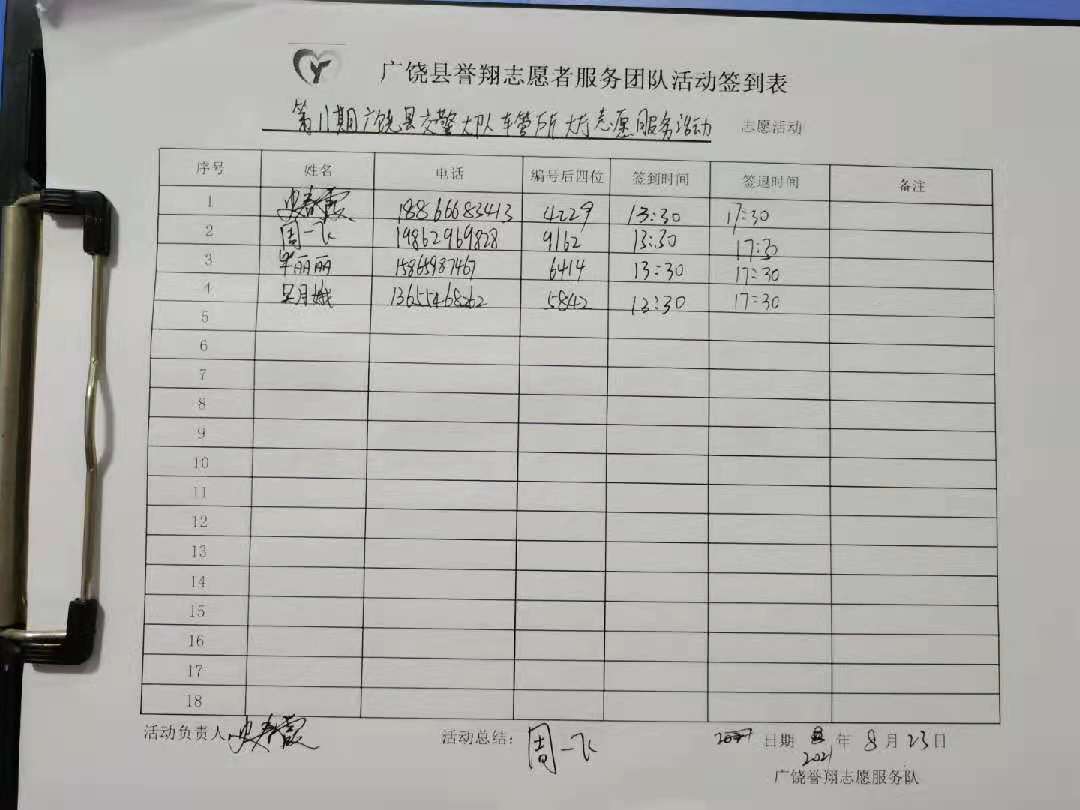 广饶县誉翔志愿者服务团队活动签到表
第11期广饶县交警大队车管所 志愿服务活动 志愿活动
序号 姓名 电话 编号后四位 签到时间 签退时间 备注
1 史春霞 18866683413 4229 13:30 17:30
2 周一飞 19862969828 9162 13:30 17:30
3 丽丽 15865987467 6414 13:30 17:30
4 月娥 13655468262 5842 13:30 17:30
5
6
7
8
9
10
11
12
13
14
15
16
17
18
活动负责人 史春霞 活动总结: 周一飞 日期 2021年8月23日
广饶誉翔志愿服务队